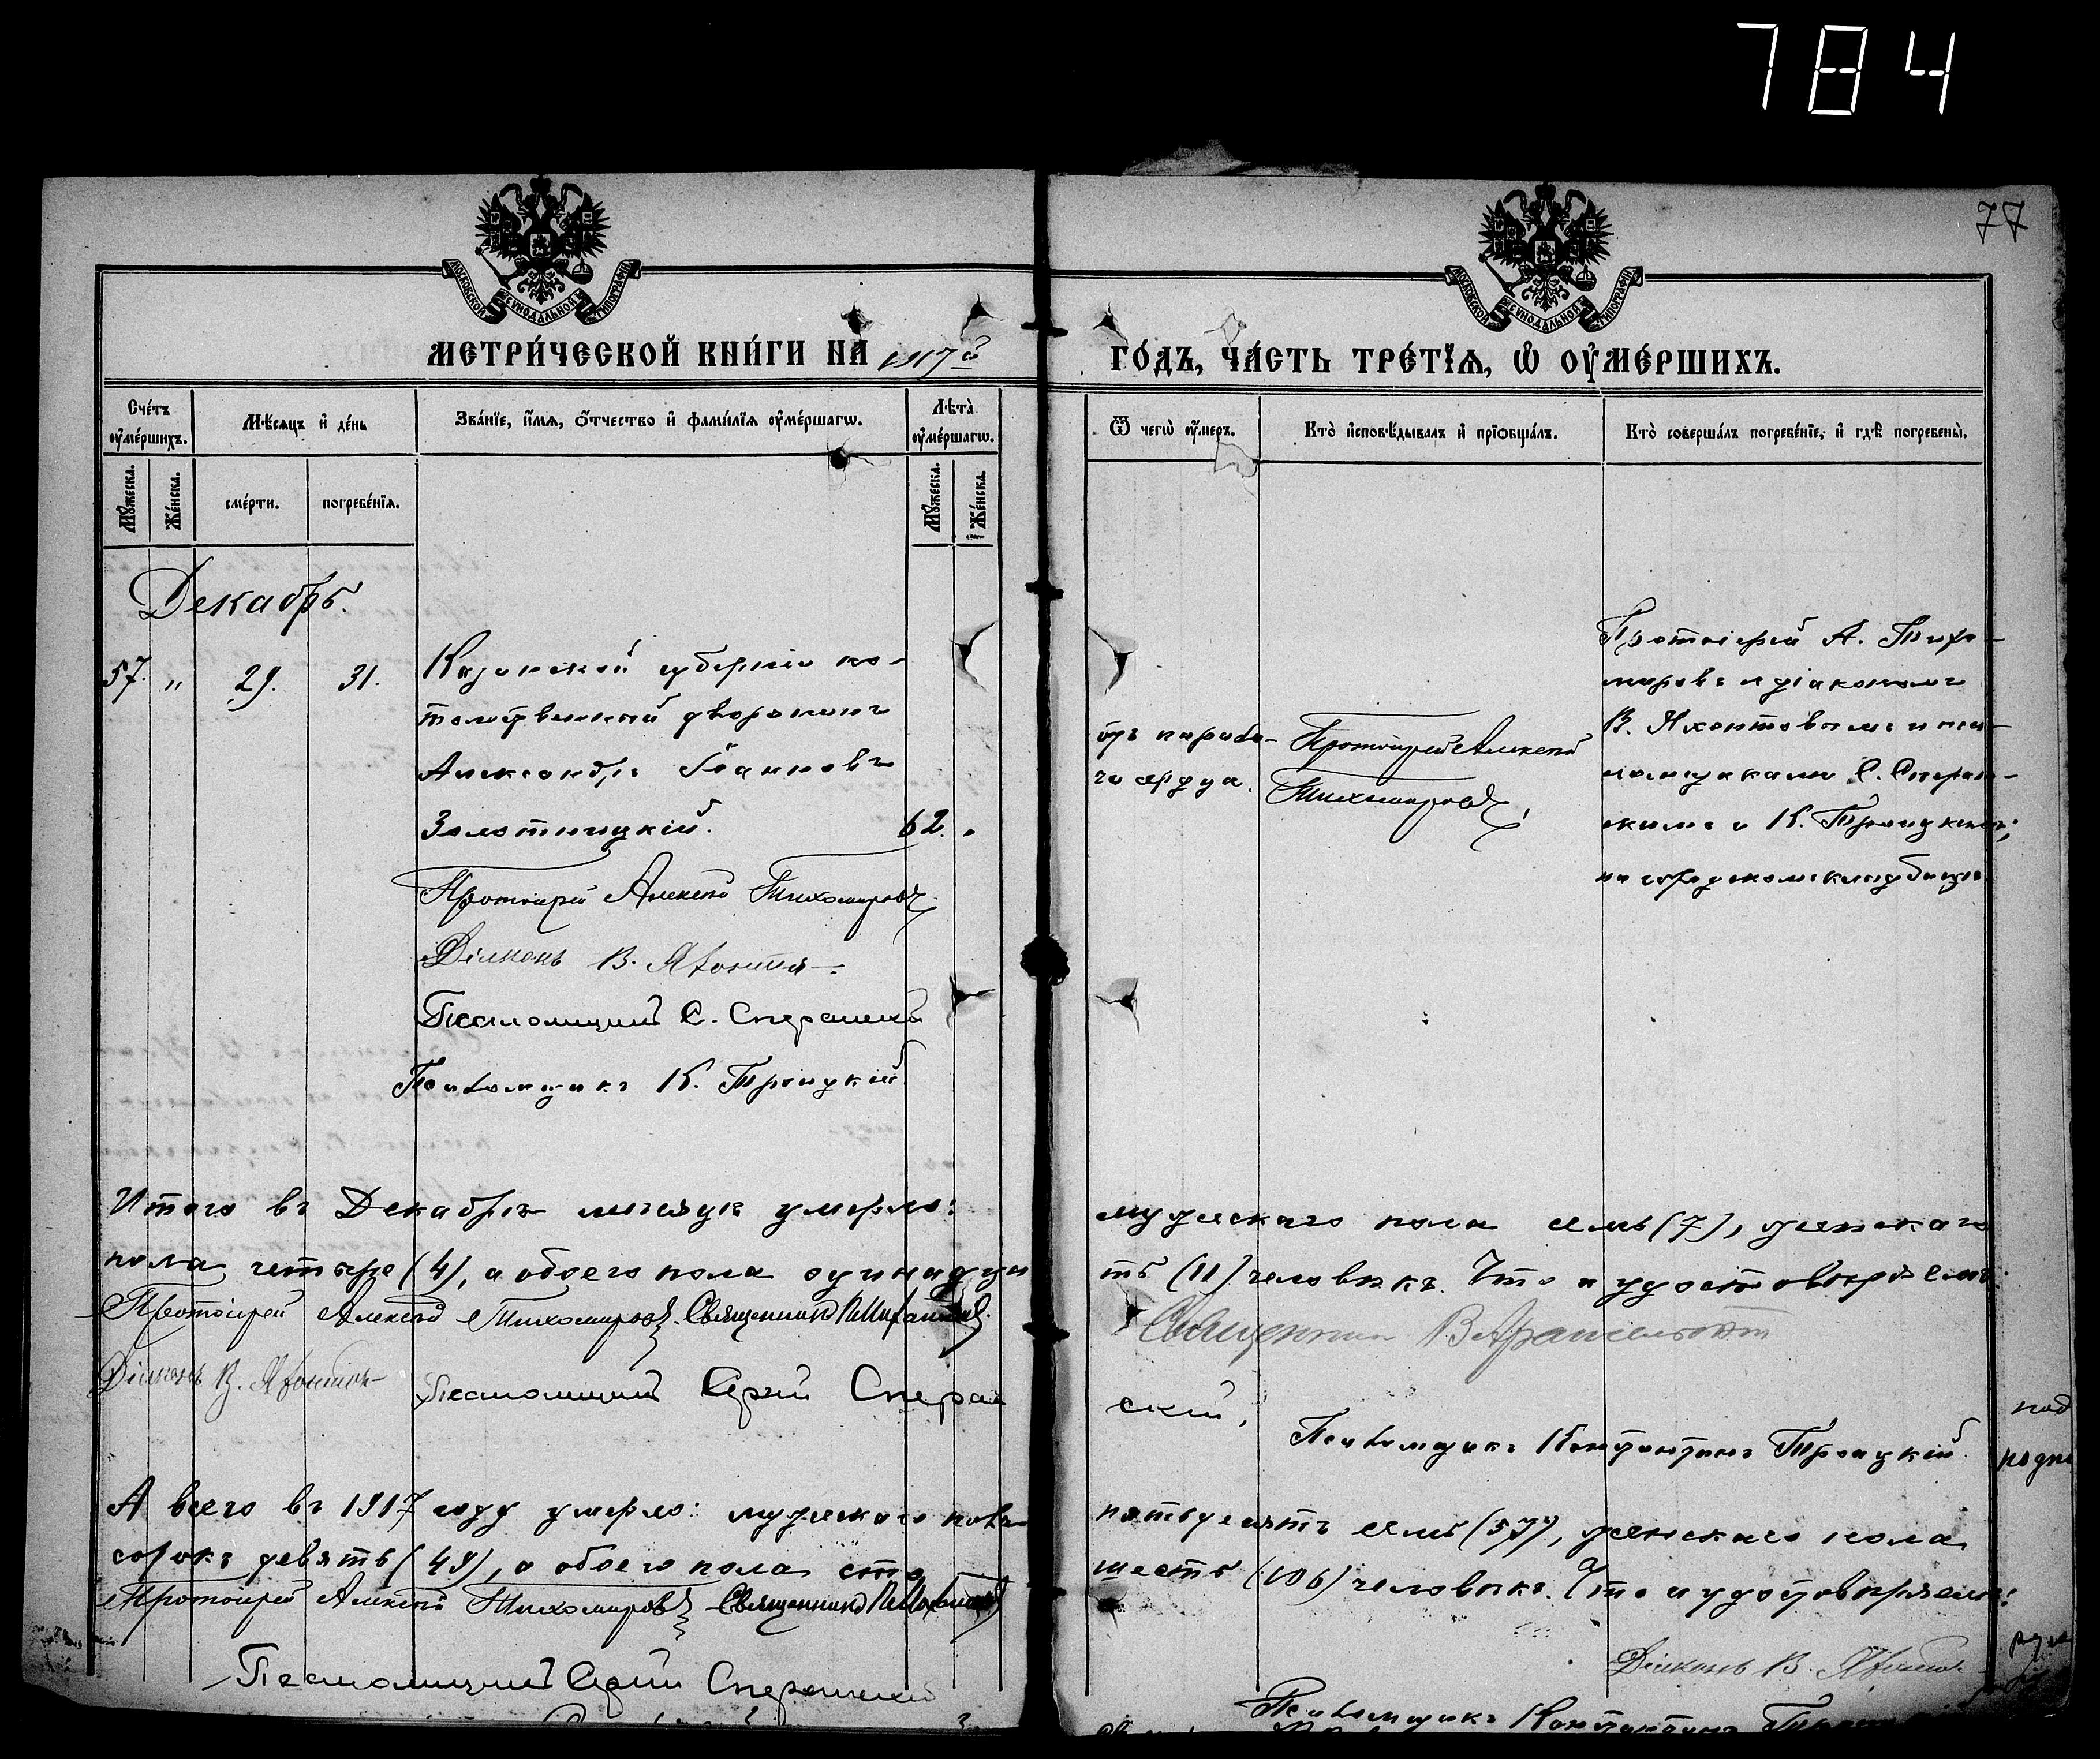 784
77
МОСКОВСКОЙ СѴНОДАЛЬНОЙ ТИПОГРАФІИ
МОСКОВСКОЙ СѴНОДАЛЬНОЙ ТИПОГРАФІИ
МЕТРИ́ЧЕСКОЙ КНИ́ГИ НА 1917й
ГО́ДЪ, ЧА́СТЬ ТРЕ́ТЇѦ, Ѡ҆ ОУ҆МЕ́РШИХЪ.
Сче́тъ оу҆ме́ршихъ.
Мѣ́сяцъ и҆ де́нь
Зва́нїе, и҆́мѧ, ѻ҆́тчество и҆ фами́лїѧ оу҆ме́ршагѡ.
Лѣ́та оу҆ме́ршагѡ.
Ѿ чегѡ̀ оу҆́меръ.
Кто̀ и҆сповѣ́дывалъ и҆ прїѡбща́лъ.
Кто̀ соверша́лъ погребе́нїе, и҆ гдѣ̀ погребены̀.
Мꙋ́жеска.
Же́нска.
сме́рти.
погребе́нїѧ.
Мꙋ́жеска.
Же́нска.
Декабрь.
57. " 29. 31.
Казанской губерніи по-
томственный дворянинъ
Александръ Іоанновъ
Золотницкій. 62. "
отъ парали-
ча сердца.
Протоіерей Алексѣй
Тихомировъ
Протоіерей А. Тихо-
мировъ съ діакономъ
В. Яхонтовымъ и пса-
ломщиками С. Сперан-
скимъ и К. Троицкимъ;
на городскомъ кладбищѣ.
Протоіерей Алексѣй Тихомировъ
Діаконъ В. Яхонтовъ
Псаломщикъ С. Сперанскій
Псаломщикъ К. Троицкій
Итого въ Декабрѣ мѣсяцѣ умерло: мужескаго пола семь (7), женскаго
пола четыре (4), а обоего пола одинадцать (11) человѣкъ. Что и удостовѣряемъ:
Протоіерей Алексѣй Тихомировъ. Священникъ
Священник
Діаконъ В. Яхонтовъ Псаломщикъ Сергій Сперанскій,
Псаломщикъ Константинъ Троицкій.
под
А всего въ 1917 году умерло: мужескаго пола пятьдесятъ семь (57), женскаго пола
сорокъ девять (49), а обоего пола сто шесть (106) человѣкъ. Что и удостовѣряемъ:
Протоіерей Алексѣй Тихомировъ Священникъ
Діаконъ В. Яхонтовъ
Псаломщикъ Сергій Сперанскій
Псаломщикъ Константинъ